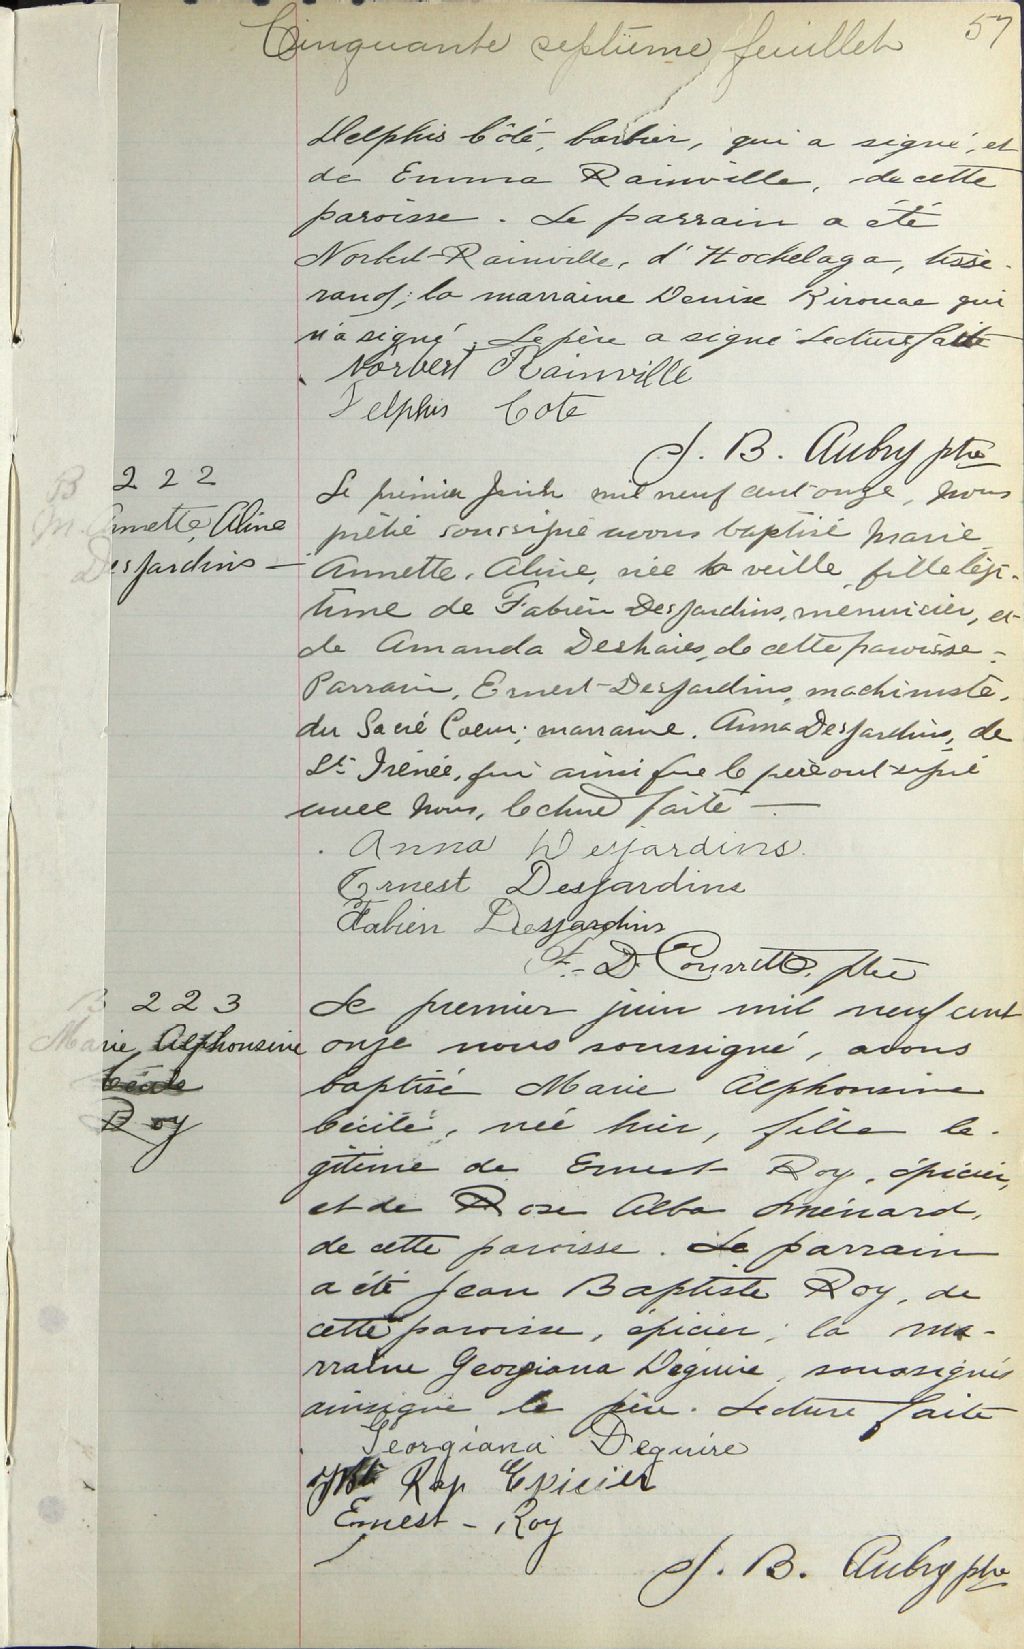 Cinquante septième feuillet 57
Delphis Côté, barbier, qui a signé, et
de Emma Rainville, de cette
paroisse. Le parrain a été
Norbert Rainville, d'Hochelaga, tisse-
rand; la marraine Denise Kirouac qui
n'a signé. Le père a signé Lecture faite
Norbert Rainville
Delphis Cote
J. B. Aubry ptre
B 222
M. Annette, Aline
Desjardins —
Le premier juin mil neuf cent onze, nous
prêtre soussigné avons baptisé Marie
Annette, Aline, née la veille, fille légi-
time de Fabien Desjardins, menuisier, et
de Amanda Deshaies, de cette paroisse -
Parrain, Ernest Desjardins, machiniste,
du Sacré Coeur; marraine, Anna Desjardins, de
St Irénée, qui ainsi que le père ont signé
avec nous, lecture faite —
Anna Desjardins.
Ernest Desjardins
Fabien Desjardins
F.-D. ptre
B 223
Marie Alphonsine
Cécile
Roy
Le premier juin mil neuf cent
onze nous soussigné, avons
baptisé Marie Alphonsine
Cécile, née hier, fille lé-
gitime de Ernest Roy, épicier,
et de Rose Alba Ménard,
de cette paroisse. Le parrain
a été Jean Baptiste Roy, de
cette paroisse, épicier; la ma-
rraine Georgiana Déguire, soussignés
ainsi que le père. Lecture faite
Georgiana Deguire
JBte Roy Epicier
Ernest - Roy
J. B. Aubry ptre